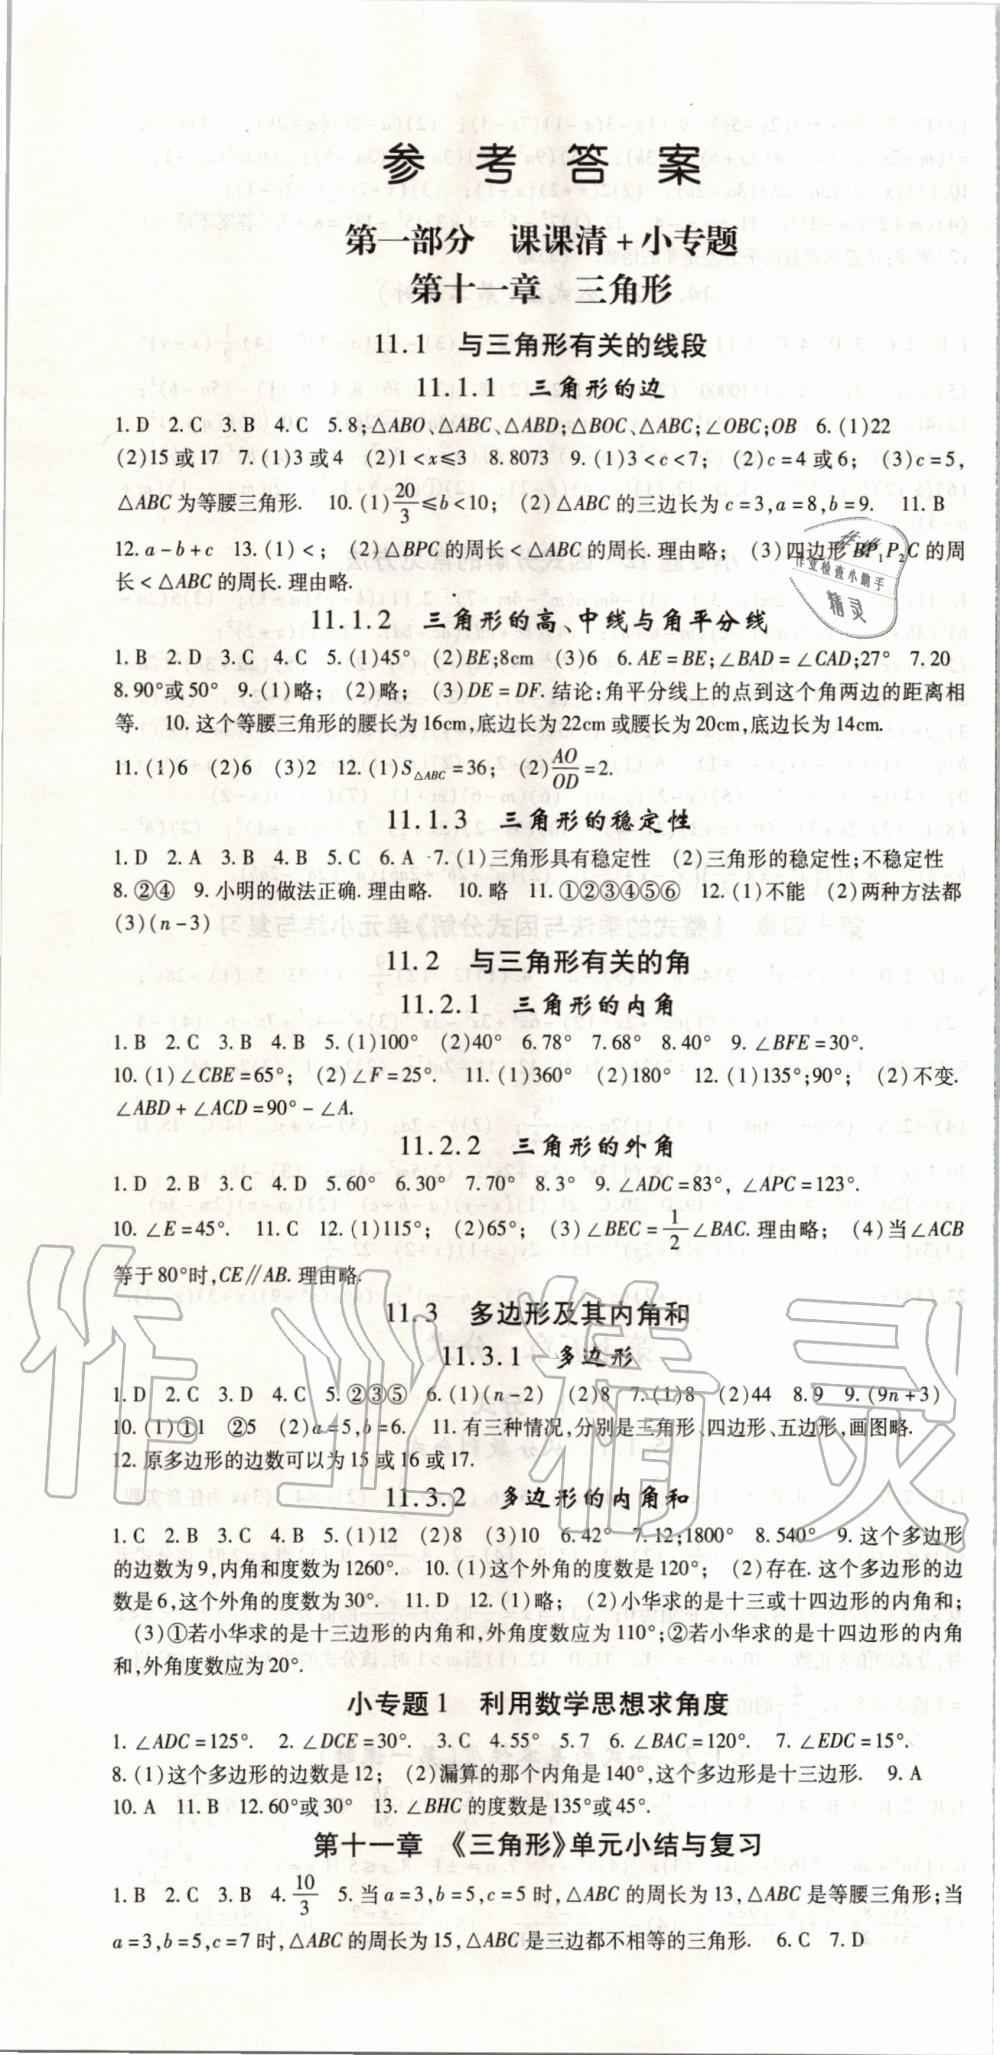 参考答案
第一部分 课课清+小专题
第十一章 三角形
11.1 与三角形有关的线段
11.1.1 三角形的边
1. D 2. C 3. B 4. C 5. 8;△ABO、△ABC、△ABD;△BOC、△ABC;∠OBC;OB 6. (1)22
(2)15或17 7. (1)3或4 (2)1<x≤3 8. 8073 9. (1)3<c<7; (2)c=4或6; (3)c=5,
△ABC为等腰三角形. 10. (1)20/3≤b<10; (2)△ABC的三边长为c=3,a=8,b=9. 11. B
12. a-b+c 13. (1)<; (2)△BPC的周长<△ABC的周长. 理由略; (3)四边形BP₁P₂C的周
长<△ABC的周长. 理由略.
11.1.2 三角形的高、中线与角平分线
1. B 2. D 3. C 4. C 5. (1)45° (2)BE;8cm (3)6 6. AE=BE;∠BAD=∠CAD;27° 7. 20
8. 90°或50° 9. (1)略; (2)略; (3)DE=DF. 结论:角平分线上的点到这个角两边的距离相
等. 10. 这个等腰三角形的腰长为16cm,底边长为22cm或腰长为20cm,底边长为14cm.
11. (1)6 (2)6 (3)2 12. (1)S△ABC=36; (2)AO/OD=2.
11.1.3 三角形的稳定性
1. D 2. A 3. B 4. B 5. C 6. A 7. (1)三角形具有稳定性 (2)三角形的稳定性;不稳定性
8. ②④ 9. 小明的做法正确. 理由略. 10. 略 11. ①②③④⑤⑥ 12. (1)不能 (2)两种方法都
(3)(n-3)
11.2 与三角形有关的角
11.2.1 三角形的内角
1. B 2. C 3. B 4. B 5. (1)100° (2)40° 6. 78° 7. 68° 8. 40° 9. ∠BFE=30°.
10. (1)∠CBE=65°; (2)∠F=25°. 11. (1)360° (2)180° 12. (1)135°;90°; (2)不变.
∠ABD+∠ACD=90°-∠A.
11.2.2 三角形的外角
1. D 2. B 3. C 4. D 5. 60° 6. 30° 7. 70° 8. 3° 9. ∠ADC=83°, ∠APC=123°.
10. ∠E=45°. 11. C 12. (1)115°; (2)65°; (3)∠BEC=1/2∠BAC. 理由略; (4)当∠ACB
等于80°时,CE∥AB. 理由略.
11.3 多边形及其内角和
11.3.1 多边形
1. D 2. C 3. D 4. C 5. ②③⑤ 6. (1)(n-2) (2)8 7. (1)8 (2)44 8. 9 9. (9n+3)
10. (1)①1 ②5 (2)a=5,b=6. 11. 有三种情况,分别是三角形、四边形、五边形,画图略.
12. 原多边形的边数可以为15或16或17.
11.3.2 多边形的内角和
1. C 2. B 3. C 4. B 5. (1)12 (2)8 (3)10 6. 42° 7. 12;1800° 8. 540° 9. 这个多边形
的边数为9,内角和度数为1260°. 10. (1)这个外角的度数是120°; (2)存在. 这个多边形的边
数是6,这个外角的度数为30°. 11. D 12. (1)略; (2)小华求的是十三或十四边形的内角和;
(3)①若小华求的是十三边形的内角和,外角度数应为110°;②若小华求的是十四边形的内角
和,外角度数应为20°.
小专题1 利用数学思想求角度
1. ∠ADC=125°. 2. ∠DCE=30°. 3. C 4. 55° 5. 7 6. ∠BAC=120°. 7. ∠EDC=15°.
8. (1)这个多边形的边数是12; (2)漏算的那个内角是140°,这个多边形是十三边形. 9. A
10. A 11. B 12. 60°或30° 13. ∠BHC的度数是135°或45°.
第十一章 《三角形》单元小结与复习
1. B 2. B 3. B 4. 10/3 5. 当a=3,b=5,c=5时,△ABC的周长为13,△ABC是等腰三角形;当
a=3,b=5,c=7时,△ABC的周长为15,△ABC是三边都不相等的三角形. 6. C 7. D
作业检查小助手
精灵
作业精灵